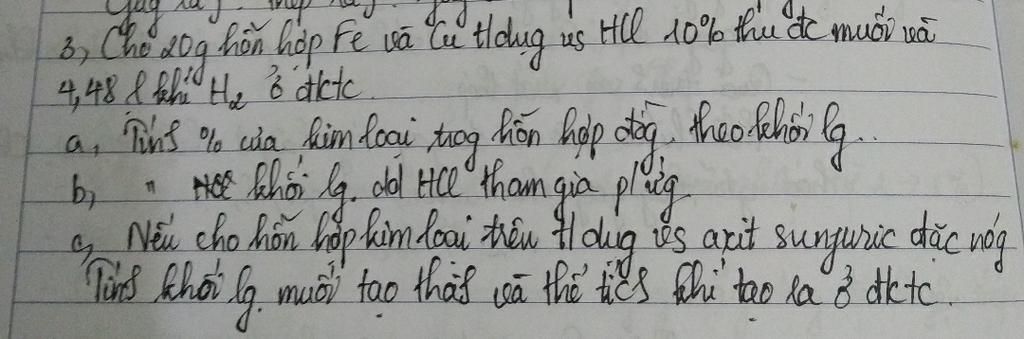 3, Cho 20g hỗn hợp Fe và Cu tdụg vs HCl 10% thu đc muối và
4,48 l khí H2 ở đktc
a, Tính % của kim loại trog hỗn hợp đồg, theo khối lg..
b, " khối lg. dd HCl tham gia p/ứg.
c, Nếu cho hỗn hợp kim loại trên tdụg vs axit sunguric đặc nóg
Tính khối lg. muối tạo thàh và thể tích khí tạo ra ở đktc.